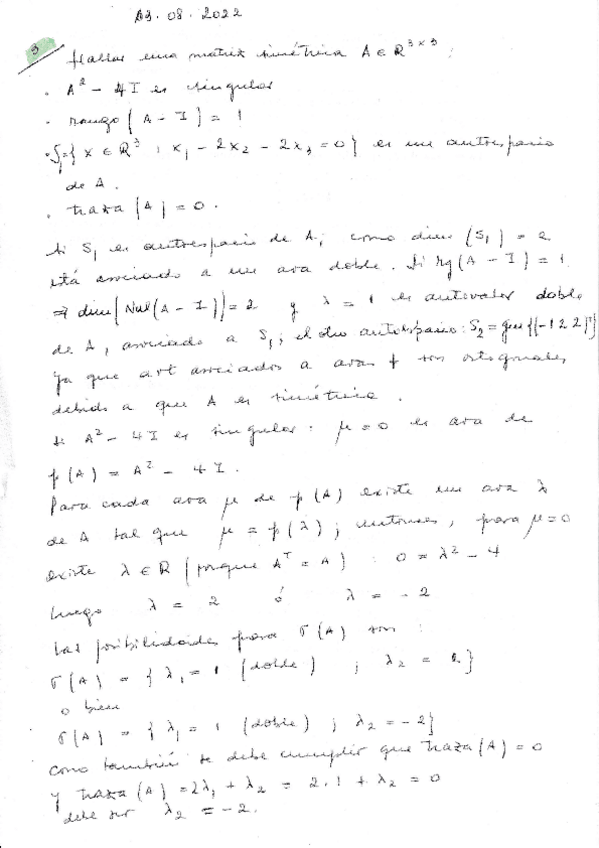 23.08.2022
3 Hallar una matriz simétrica A ∈ R^{3×3} ;
· A² - 4I es singular
· rango(A - I) = 1
· S₁ = { x ∈ R³ : x₁ - 2x₂ - 2x₃ = 0 } es un autoespacio
de A.
· traza(A) = 0.
Si S₁ es autoespacio de A, como dim(S₁) = 2
está asociado a un ava doble. Si rg(A - I) = 1
⇒ dim(Nul(A - I)) = 2 y λ = 1 es autovalor doble
de A, asociado a S₁; el otro autoespacio: S₂ = gen{(-1 2 2)ᵀ}
ya que avt asociados a avas ≠ son ortogonales
debido a que A es simétrica.
Si A² - 4I es singular: μ = 0 es ava de
p(A) = A² - 4I.
Para cada ava μ de p(A) existe un ava λ
de A tal que μ = p(λ); entonces, para μ = 0
existe λ ∈ R (porque Aᵀ = A) : 0 = λ² - 4
luego λ = 2 ó λ = -2
Las posibilidades para σ(A) son:
σ(A) = { λ₁ = 1 (doble) ; λ₂ = 2}
o bien
σ(A) = { λ₁ = 1 (doble) ; λ₂ = -2}
como también se debe cumplir que traza(A) = 0
y traza(A) = 2λ₁ + λ₂ = 2.1 + λ₂ = 0
debe ser λ₂ = -2.